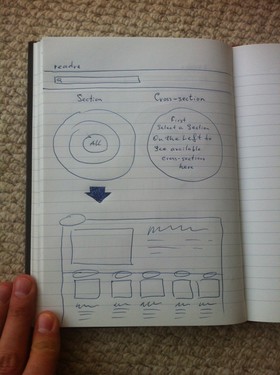 Section
Cross-section
ALL
First
Select a Section
On the Left to
See available
cross-sections
here